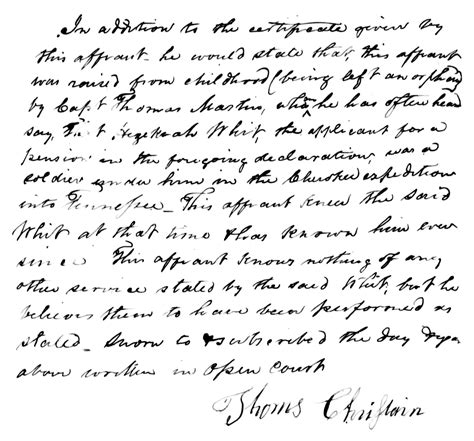 In addition to the certificate given by
this affiant he would state that this affiant
was raised from childhood (being left an orphan)
by Capt Thomas Martin, who he has often heard
say, that Hezekiah Whit, the applicant for a
pension in the foregoing declaration, was a
soldier under him in the Cherokee expedition
into Tennessee – This affiant knew the said
Whit at that time & has known him ever
since This affiant knows nothing of any
other service stated by the said Whit, but he
believes them to have been performed as
stated – Sworn to & subscribed the day & year
above written in open court
Thoms Christain